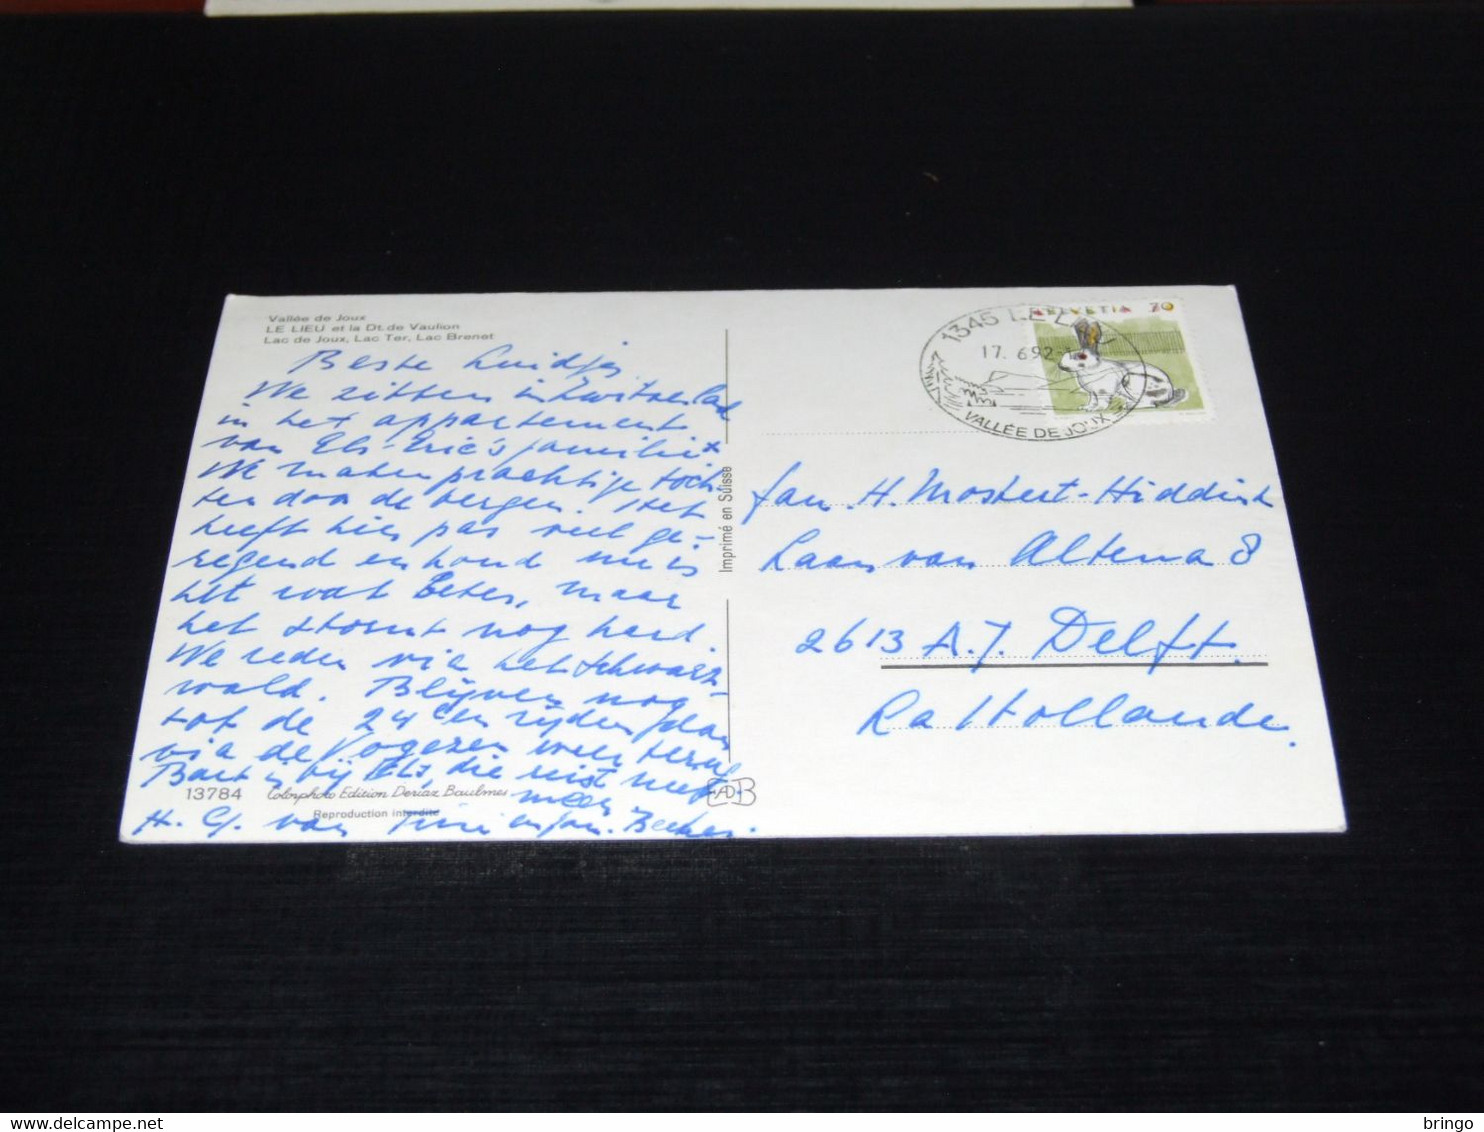 Vallée de Joux
LE LIEU et la Dt. de Vaulion
Lac de Joux, Lac Ter, Lac Brenet
Beste Luidjes
We zitten in Zwitserland
in het appartement
van Els-Eric's familie
We maken prachtige toch-
ten door de bergen. Het
heeft hier pas veel ge-
regend en houd nu is
het wat beter, maar
het stormt nog hard.
We reden via het Schwarz-
wald. Blijven nog
tot de 24en rijden dan
via de Vogezen weer terug
Bart is bij Els, die niet mee
meer
13784
Colorphoto Edition Deriaz Baulmes
Reproduction interdite
H. G. van en Jan. Becker.
Imprimé en Suisse
EDB
1345 LE LIEU
17. 6.92
VALLÉE DE JOUX
HELVETIA 70
Fam. H. Mostert-Hiddink
Laan van Altena 8
2613 A.J. Delft.
La Hollande.
bringo